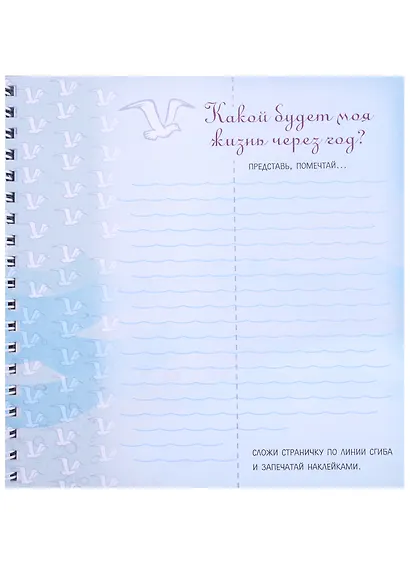 Какой будет моя
жизнь через год?
ПРЕДСТАВЬ, ПОМЕЧТАЙ...
СЛОЖИ СТРАНИЧКУ ПО ЛИНИИ СГИБА
И ЗАПЕЧАТАЙ НАКЛЕЙКАМИ.